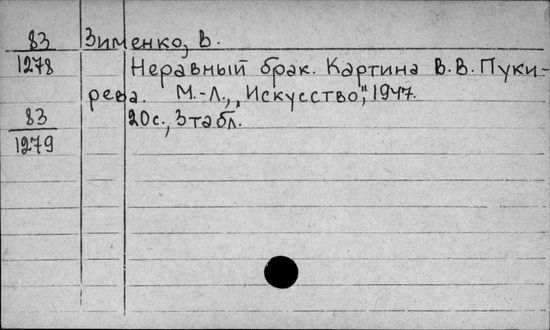 83 Зименко, В.
1278 Неравный брак. Картина В.В. Пуки-
рева. М.-Л., "Искусство", 1947.
83 20с., 3 табл.
1279